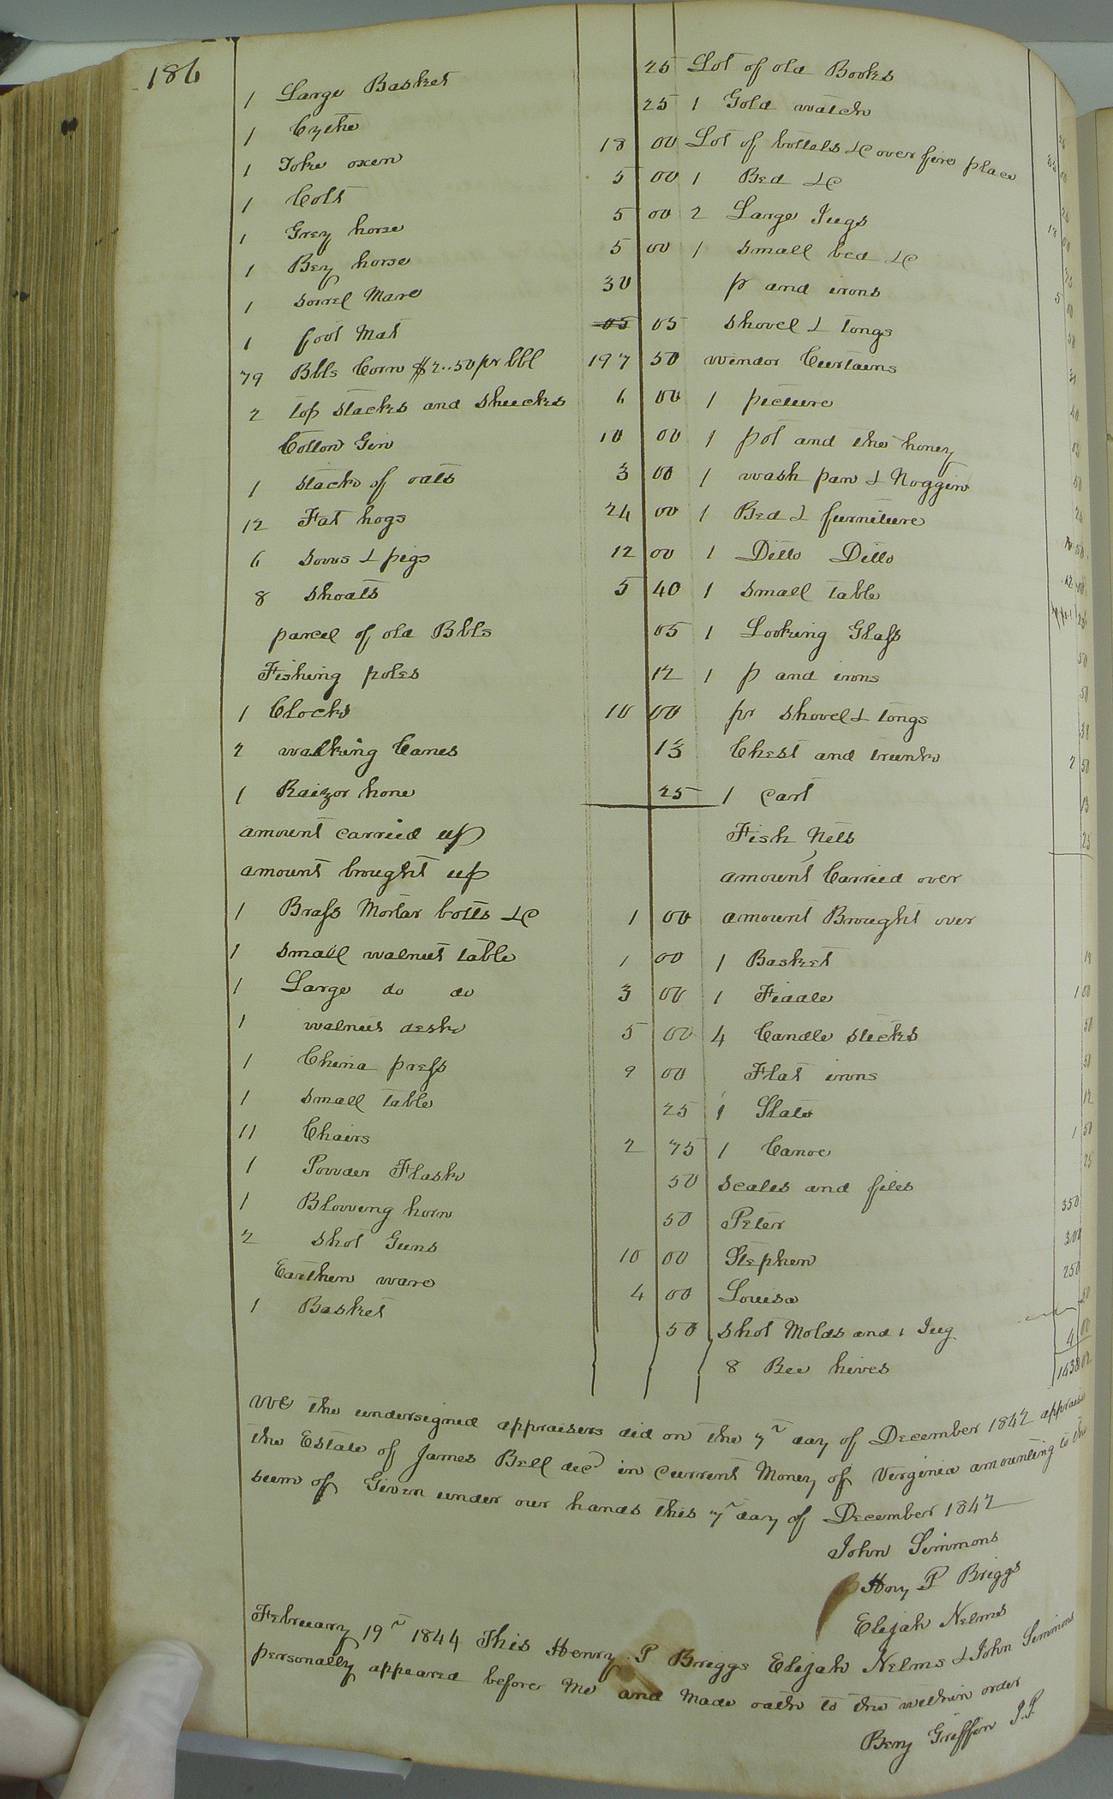 186
1 Large Basket 25
1 Cythe 25
1 Yoke oxen 18 00
1 Colt 5 00
1 Grey horse 5 00
1 Bey horse 5 00
1 sorrel Mare 30
1 foot Mat 05 05
79 Bbls Corn $2..50 pr bbl 197 50
2 top stacks and shucks 6 00
Cotton Gin 10 00
1 stack of oats 3 00
12 Fat hogs 24 00
6 sows & pigs 12 00
8 shoats 5 40
parcel of old Bbls 05
Fishing poles 12
1 Clock 10 00
2 walking Canes 13
1 Raizor hone 25
amount carried up
amount brought up
1 Brass Mortar botts &c 1 00
1 small walnut table 1 00
1 Large do do 3 00
1 walnut desk 5 00
1 China press 9 00
1 small table 25
11 Chairs 2 75
1 Powder Flask 50
1 Blowing horn 50
2 shot Guns 10 00
Earthen ware 4 00
1 Basket 50
Lot of old Books
1 Gold watch
Lot of bottels &c over fire place
1 Bed &c
2 Large Jugs
1 small bed &c
pr and irons
shovel & tongs
windor Curtains
1 picture
1 pot and the honey
1 wash pan & Noggin
1 Bed & furniture
1 Ditto Ditto
1 small table
1 Looking Glass
1 p and irons
pr shovel & tongs
Chest and trunk 2 50
1 Cart 13
Fish Nets 25
amount Carried over
amount Brought over
1 Basket
1 Fiddle 1 00
4 Candle sticks 50
Flat irons 50
1 Slate 12
1 Canoe 1 50
scales and files 25
Peter 350
Stephen 300
Louisa 250
shot Molds and 1 Jug 50
8 Bee hives 4 00
We the undersigned appraisers did on the 7th day of December 1842 appraise
the Estate of James Bell decd in current Money of Virginia amounting to the
sum of Given under our hands this 7th day of December 1842
John Simmons
Heny P Briggs
Elijah Nelms
February 19th 1844 This Henry P Briggs Elijah Nelms & John Simmons
personally appeared before Me and Made oath to the within order
Benj Griffin J.P.